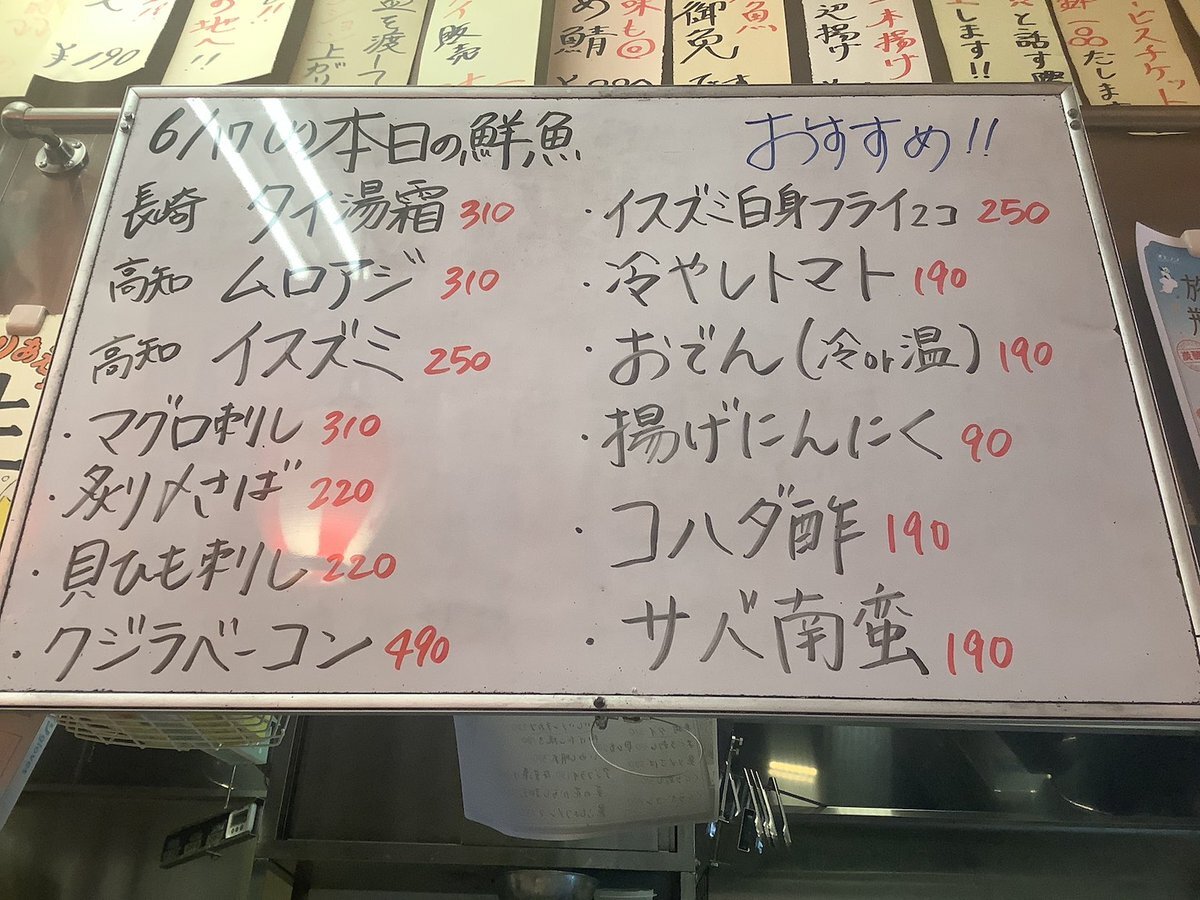 ¥190
の地へ!!
を渡して
上がり
販売
め鯖
味も◎
御免
魚
辺揚げ
木揚げ
します!!
と話す際
一品
たします
ービスチケット
6/17(火)本日の鮮魚
長崎 タイ湯霜 310
高知 ムロアジ 310
高知 イスズミ 250
・マグロ刺し 310
・炙り〆さば 220
・貝ひも刺し 220
・クジラベーコン 490
おすすめ!!
・イスズミ白身フライ2コ 250
・冷やしトマト 190
・おでん(冷or温) 190
・揚げにんにく 90
・コハダ酢 190
・サバ南蛮 190